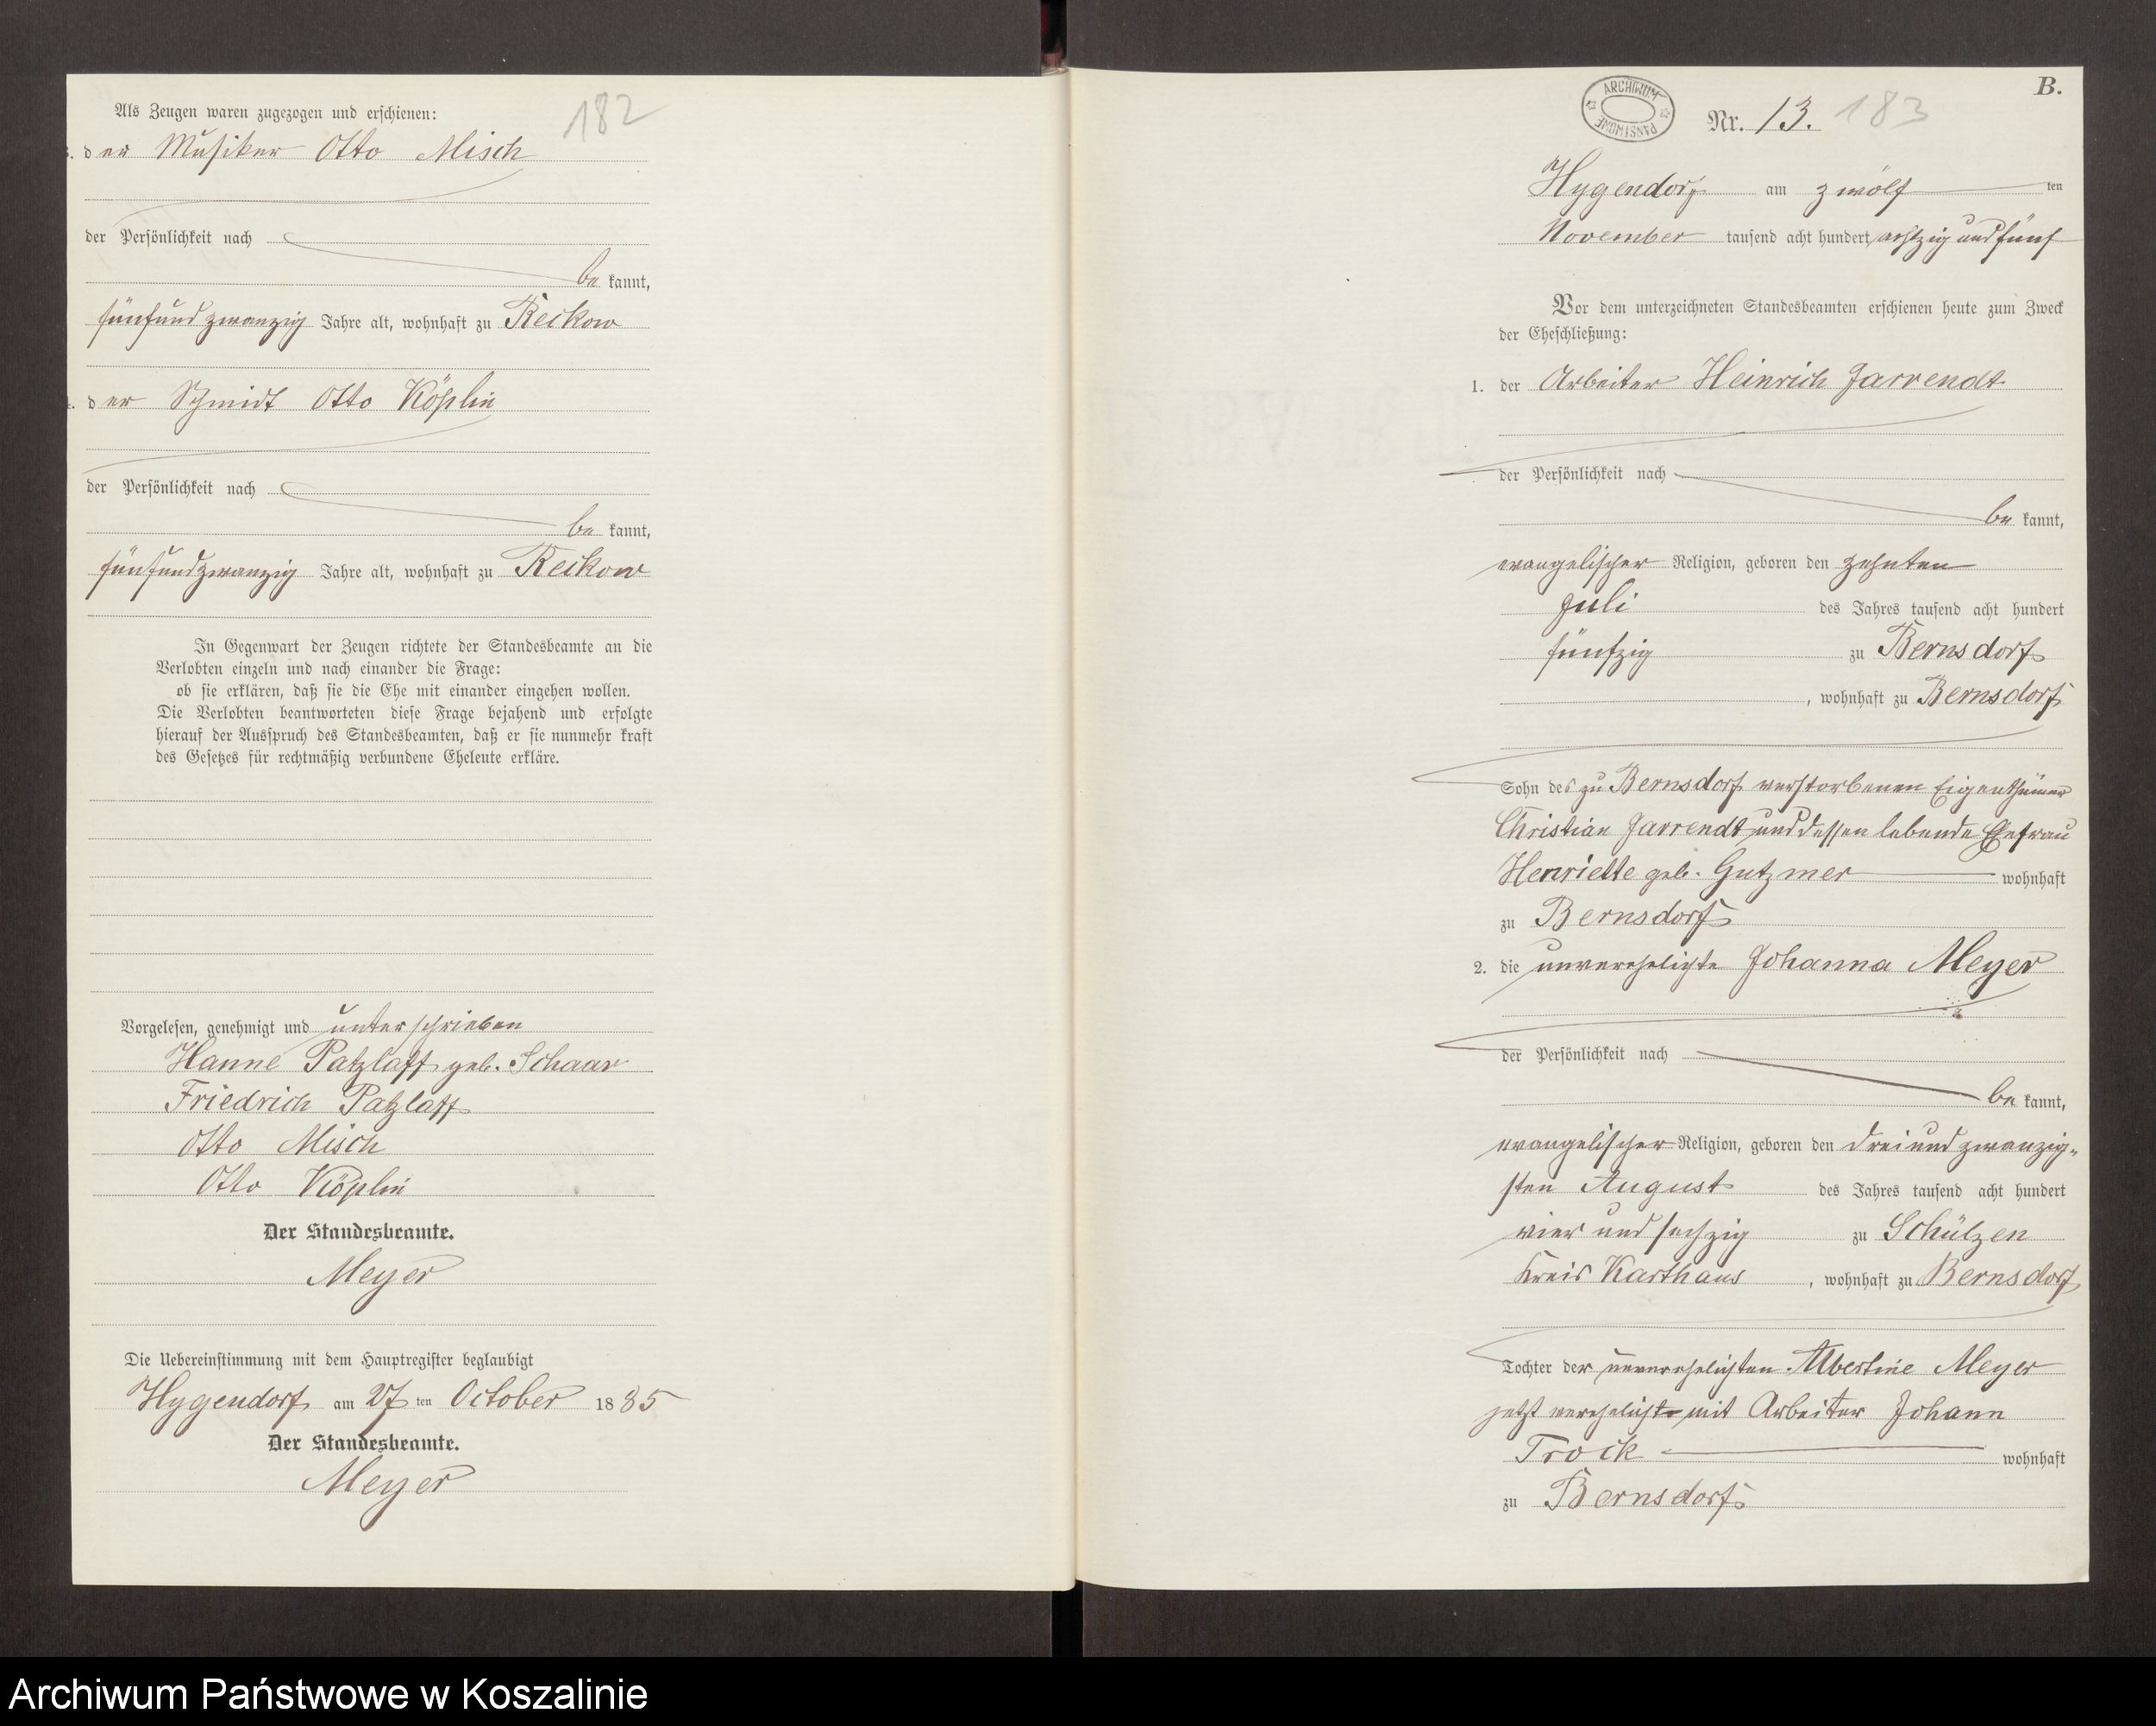 182
Als Zeugen waren zugezogen und erschienen:
3. der Musiker Otto Misch
der Persönlichkeit nach
be kannt,
fünfundzwanzig Jahre alt, wohnhaft zu Reckow
4. der Schmidt Otto Köplin
der Persönlichkeit nach
be kannt,
fünfundzwanzig Jahre alt, wohnhaft zu Reckow
In Gegenwart der Zeugen richtete der Standesbeamte an die
Verlobten einzeln und nach einander die Frage:
ob sie erklären, daß sie die Ehe mit einander eingehen wollen.
Die Verlobten beantworteten diese Frage bejahend und erfolgte
hierauf der Ausspruch des Standesbeamten, daß er sie nunmehr kraft
des Gesetzes für rechtmäßig verbundene Eheleute erkläre.
Vorgelesen, genehmigt und unterschrieben
Hanne Patzlaff geb. Schaar
Friedrich Patzlaff
Otto Misch
Otto Köplin
Der Standesbeamte.
Meyer
Die Uebereinstimmung mit dem Hauptregister beglaubigt
Hygendorf am 27 ten October 1885
Der Standesbeamte.
Meyer
B.
ARCHIWUM PAŃSTWOWE
Nr. 13. 183
Hygendorf am zwölf ten
November tausend acht hundert achtzig und fünf
Vor dem unterzeichneten Standesbeamten erschienen heute zum Zweck
der Eheschließung:
1. der Arbeiter Heinrich Jarrendt
der Persönlichkeit nach
be kannt,
evangelischer Religion, geboren den zehnten
Juli des Jahres tausend acht hundert
fünfzig zu Bernsdorf
, wohnhaft zu Bernsdorf
Sohn des zu Bernsdorf verstorbenen Eigenthümer
Christian Jarrendt und dessen lebende Ehefrau
Henriette geb. Gutzmer wohnhaft
zu Bernsdorf
2. die unverehelichte Johanna Meyer
der Persönlichkeit nach
be kannt,
evangelischer Religion, geboren den dreiundzwanzig-
sten August des Jahres tausend acht hundert
vier und sechzig zu Schülzen
Kreis Karthaus , wohnhaft zu Bernsdorf
Tochter der unverehelichten Albertine Meyer
jetzt verehelicht mit Arbeiter Johann
Trock wohnhaft
zu Bernsdorf
Archiwum Państwowe w Koszalinie